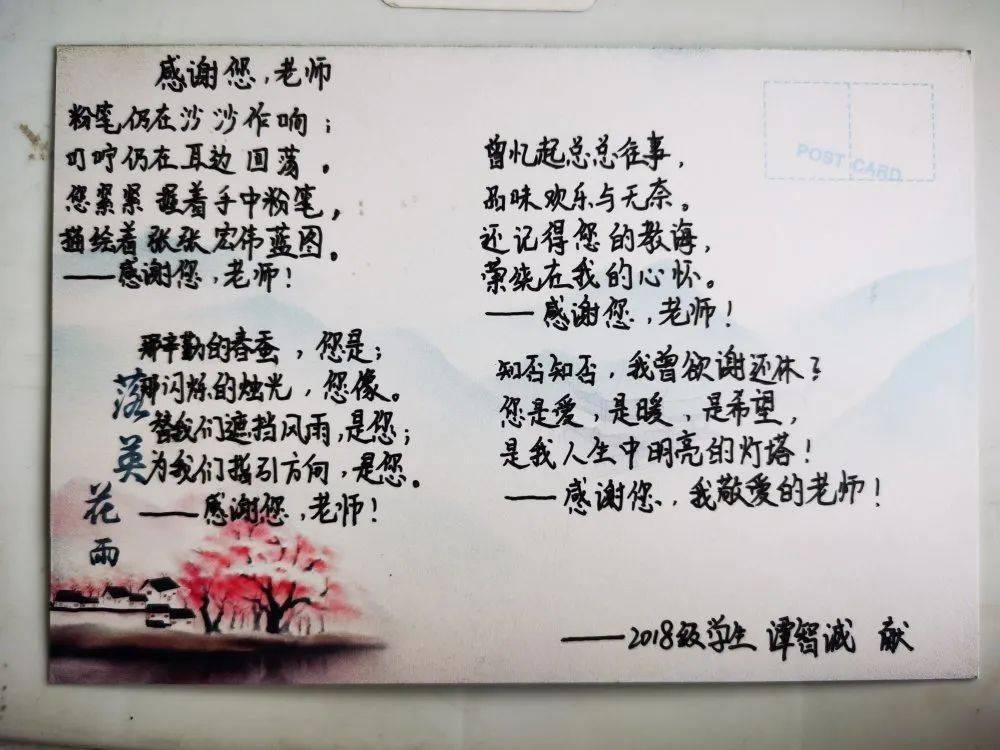 感谢您,老师
粉笔仍在沙沙作响;
叮咛仍在耳边回荡。
您紧紧握着手中粉笔,
描绘着张张宏伟蓝图。
——感谢您,老师!
那辛勤的春蚕,您是;
那闪烁的烛光,您像。
替我们遮挡风雨,是您;
为我们指引方向,是您。
——感谢您,老师!
落英花雨
POST CARD
曾忆起总总往事,
品味欢乐与无奈。
还记得您的教诲,
萦绕在我的心怀。
——感谢您,老师!
知否知否,我曾欲谢还休?
您是爱,是暖,是希望,
是我人生中明亮的灯塔!
——感谢您,我敬爱的老师!
——2018级学生 谭智诚 献